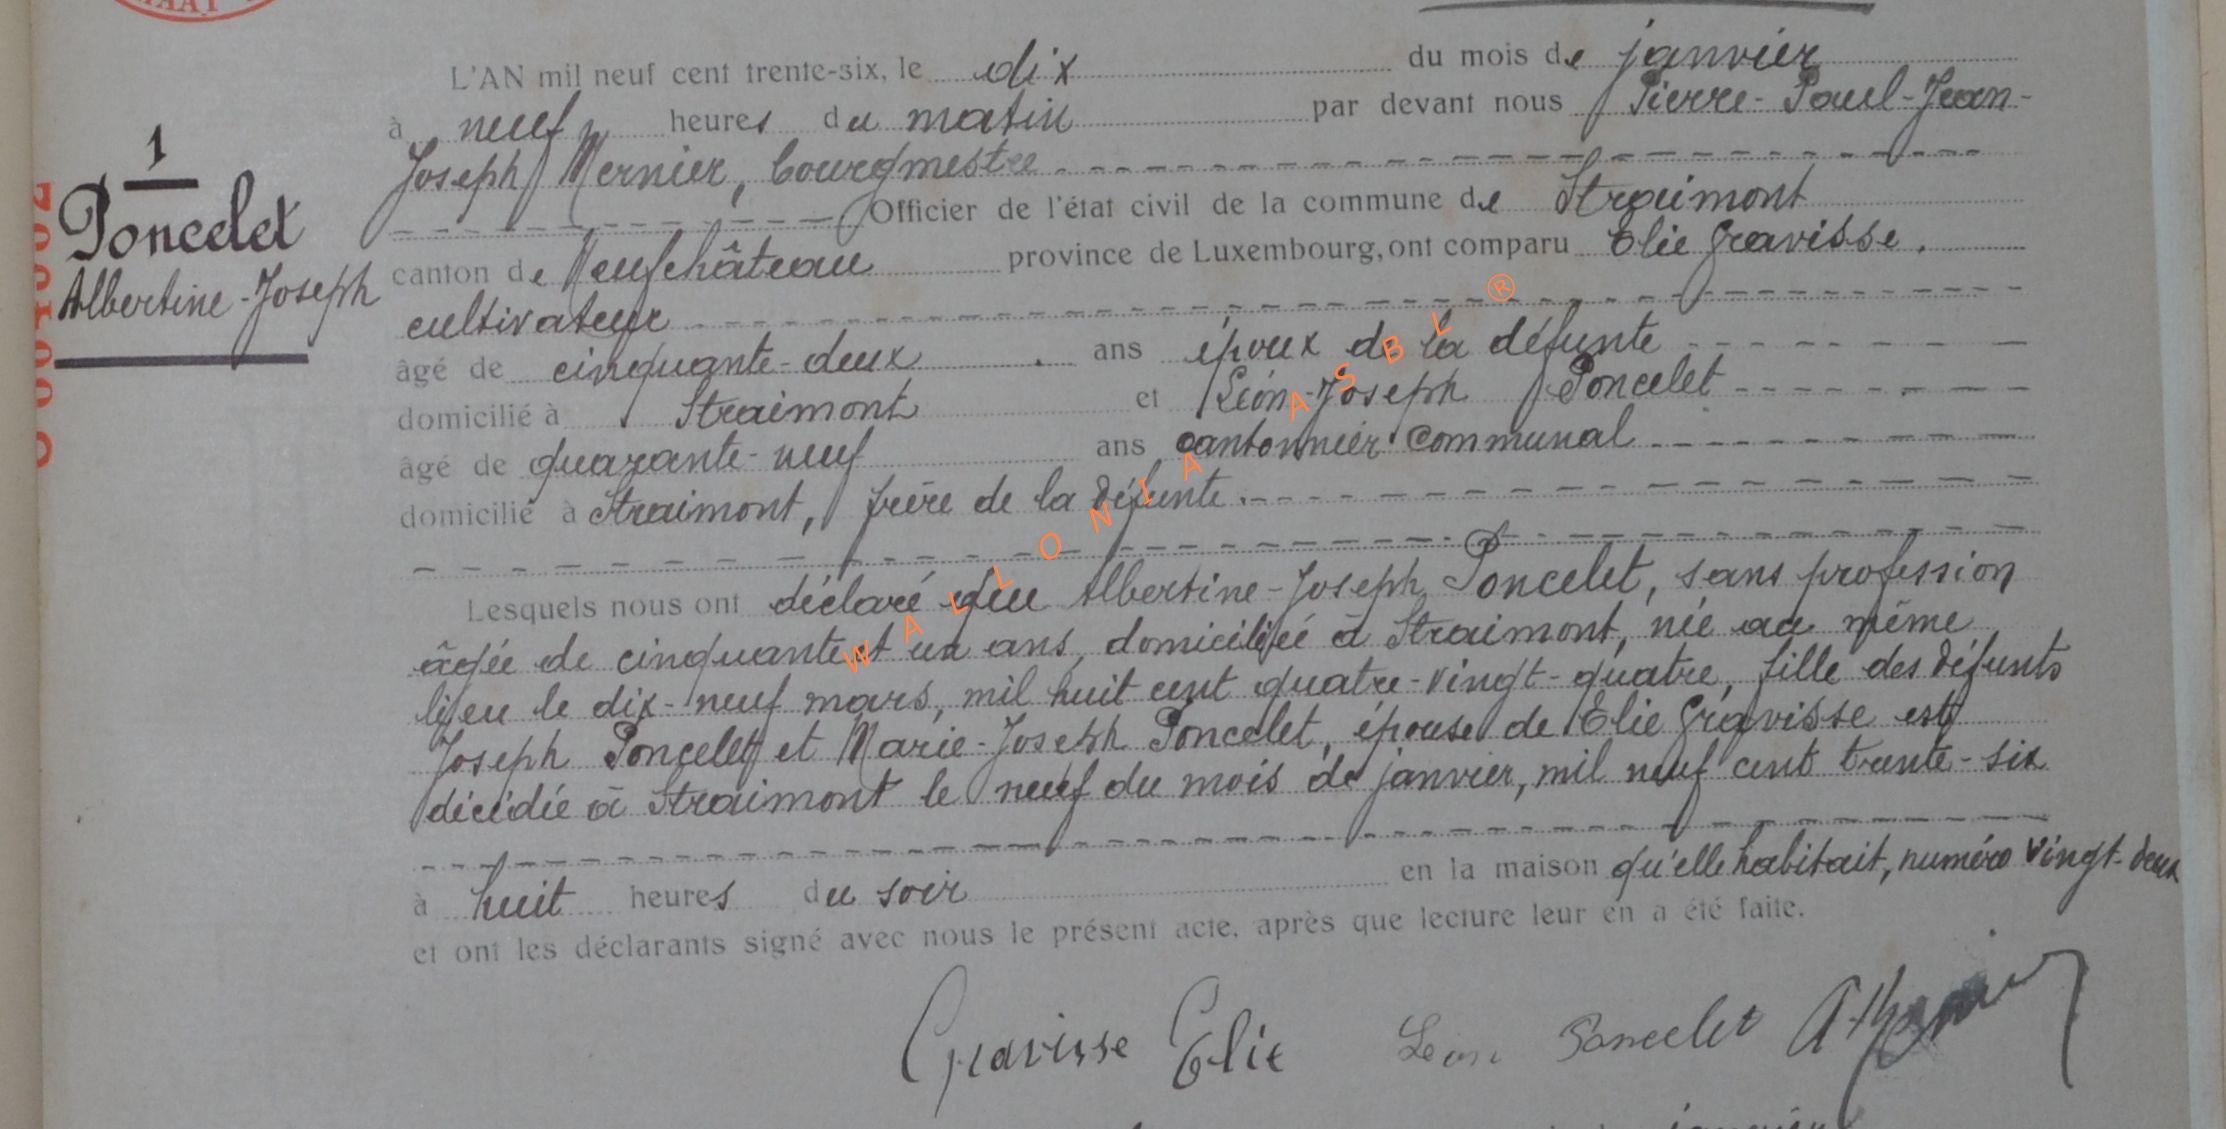 L'AN mil neuf cent trente-six, le dix du mois de janvier
à neuf heures du matin par devant nous Pierre-Paul-Jean-
Joseph Mernier, bourgmestre
Officier de l'état civil de la commune de Straimont
canton de Neufchâteau province de Luxembourg, ont comparu Elie Gravisse,
cultivateur
âgé de cinquante-deux ans époux de la défunte
domicilié à Straimont et Léon-Joseph Poncelet
âgé de quarante-neuf ans cantonnier communal
domicilié à Straimont, frère de la défunte.
Lesquels nous ont déclaré que Albertine-Joseph Poncelet, sans profession
âgée de cinquante et un ans, domiciliée à Straimont, née au même
lieu le dix-neuf mars, mil huit cent quatre-vingt-quatre, fille des défunts
Joseph Poncelet et Marie-Joseph Poncelet, épouse de Elie Gravisse est
décédée à Straimont le neuf du mois de janvier, mil neuf cent trente-six
à huit heures du soir en la maison qu'elle habitait, numéro vingt-deux
et ont les déclarants signé avec nous le présent acte, après que lecture leur en a été faite.
Gravisse Elie Léon Poncelet
1
Poncelet
Albertine-Joseph
WALLONIA ASBL ®
janvier